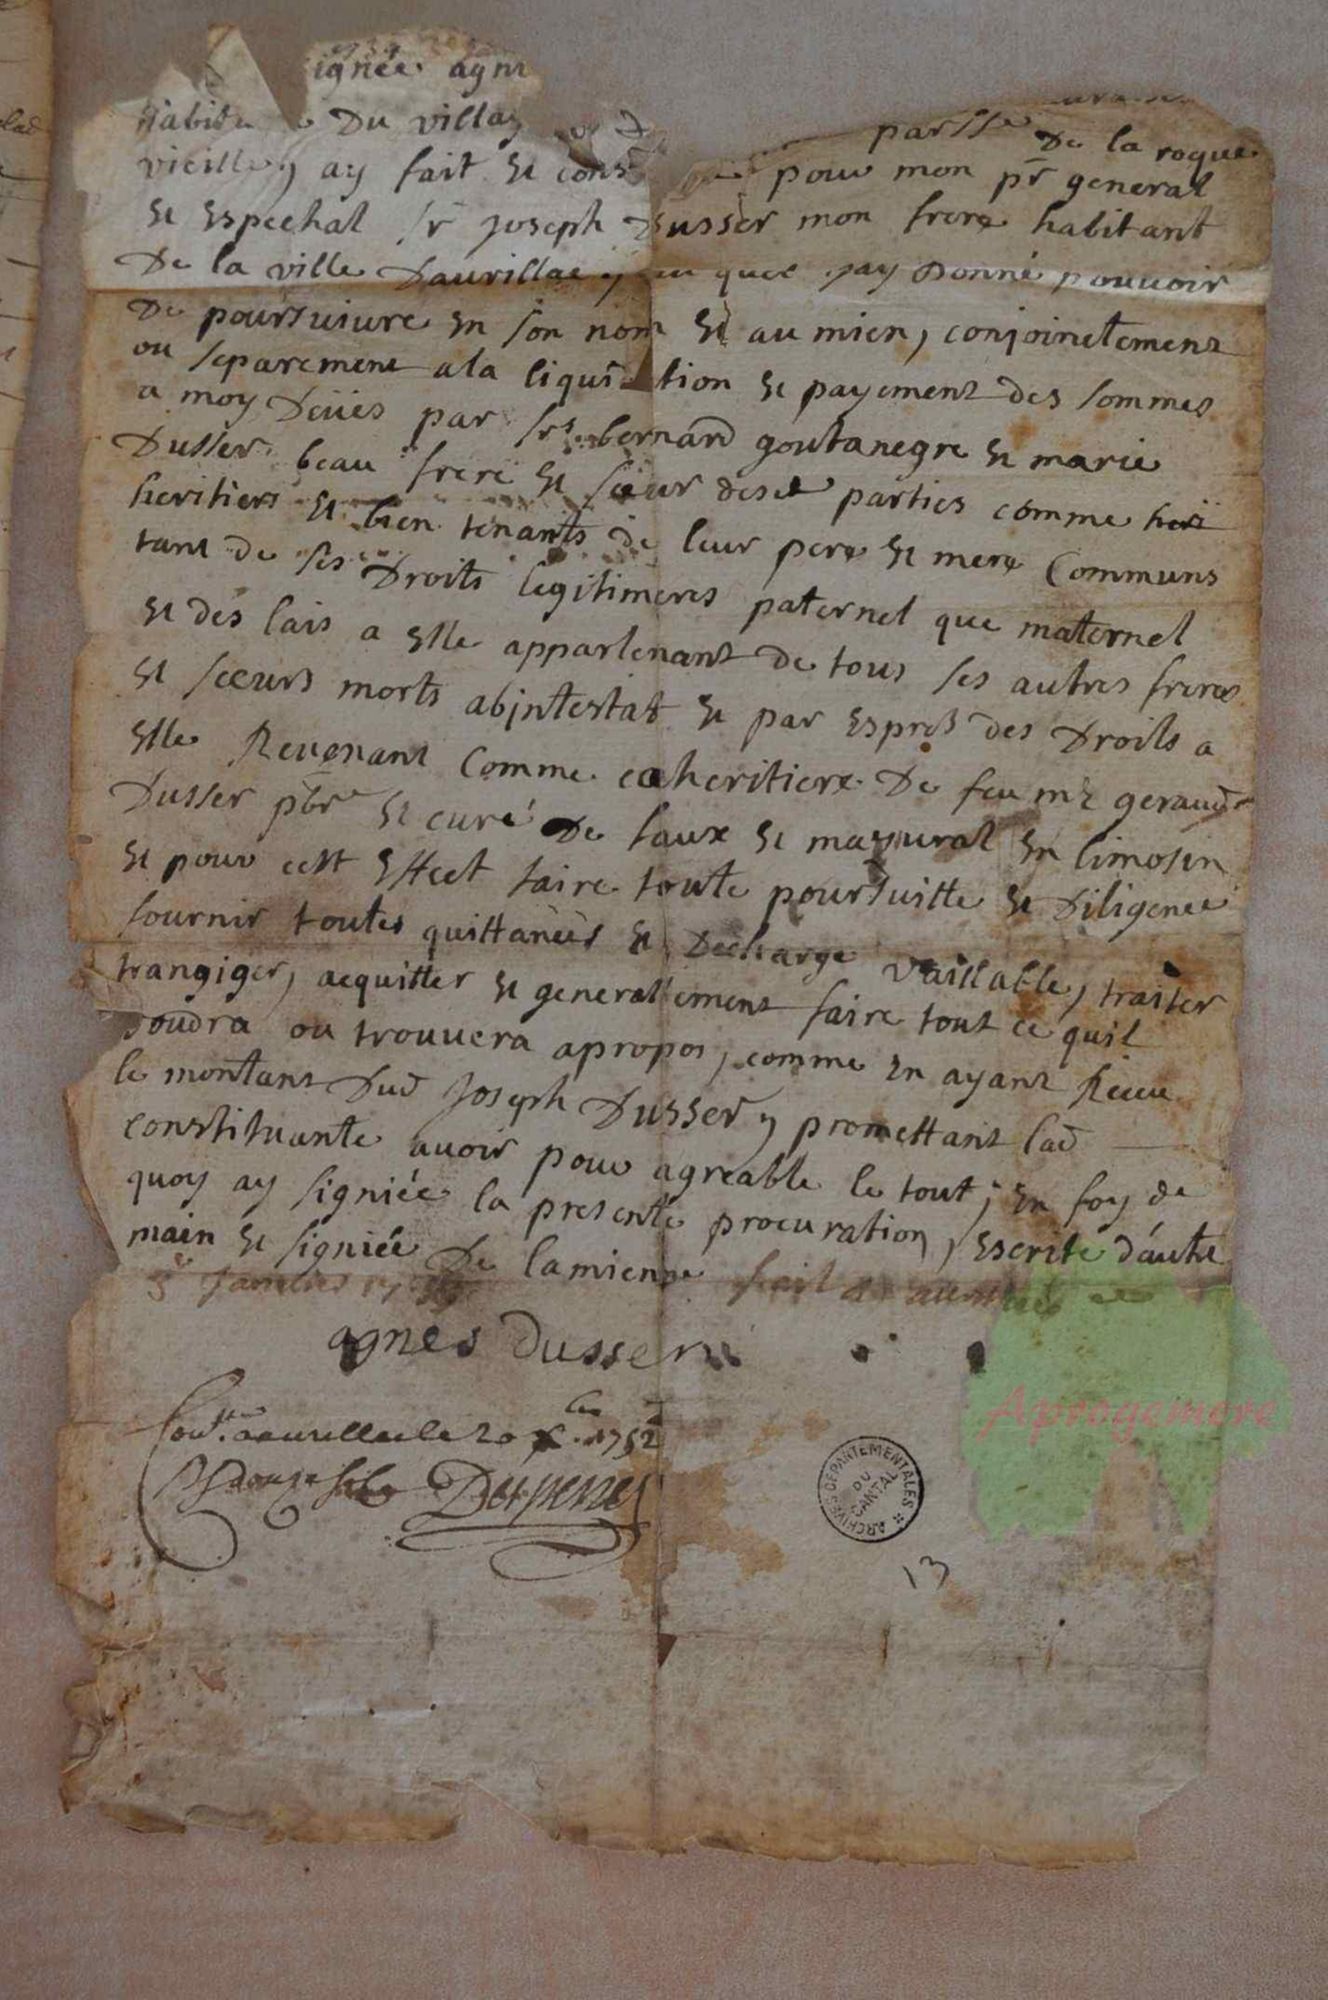 ignée agn
habita Du villag
parsse De la roque
vieille, ay fait et cons pour mon pr general
et Espechal sr Joseph Dusser mon frere habitant
De la ville Daurillac, au quel jay Donné pouvoir
De poursuiure En son nom Et au mien, conjoinctement
ou separement a la liquidation et payement des sommes
a moy Deües par srs bernard goutanegre et marie
Dusser beau frere et sœur desd parties comme heri
heritiers et bien tenants de leur pere et mere Communs
tant de ses Droits legitimeres paternel que maternel
et des lais a Elle appartenant de tous ses autres freres
et sœurs morts abjntestat et par Esprés des Droits a
Elle Reuenant Comme coheritiere De feu mr geraud
Dusser pbre et curé De saux et maymal En limosin
et pour cest Effect faire toute poursuitte et Diligence
fournir toutes quittances et Decharge vaillable, traiter
trangiger, acquitter et generallement faire tout ce quil
voudra ou trouuera apropos, comme En ayant Receu
le montant Dud Joseph Dusser, promettant lad
constituante auoir pour agreable le tout; En foy de
quoy ay signiée la presente procuration, Escrite d'autre
main et signiée De la mienne fait a aurillac ce
5e Januier
agnes Dusser
Conttr. a aurillac le 20 xbre 1752
R Douze sols Despenes
ARCHIVES DÉPARTEMENTALES DU CANTAL
13
Aprogemere